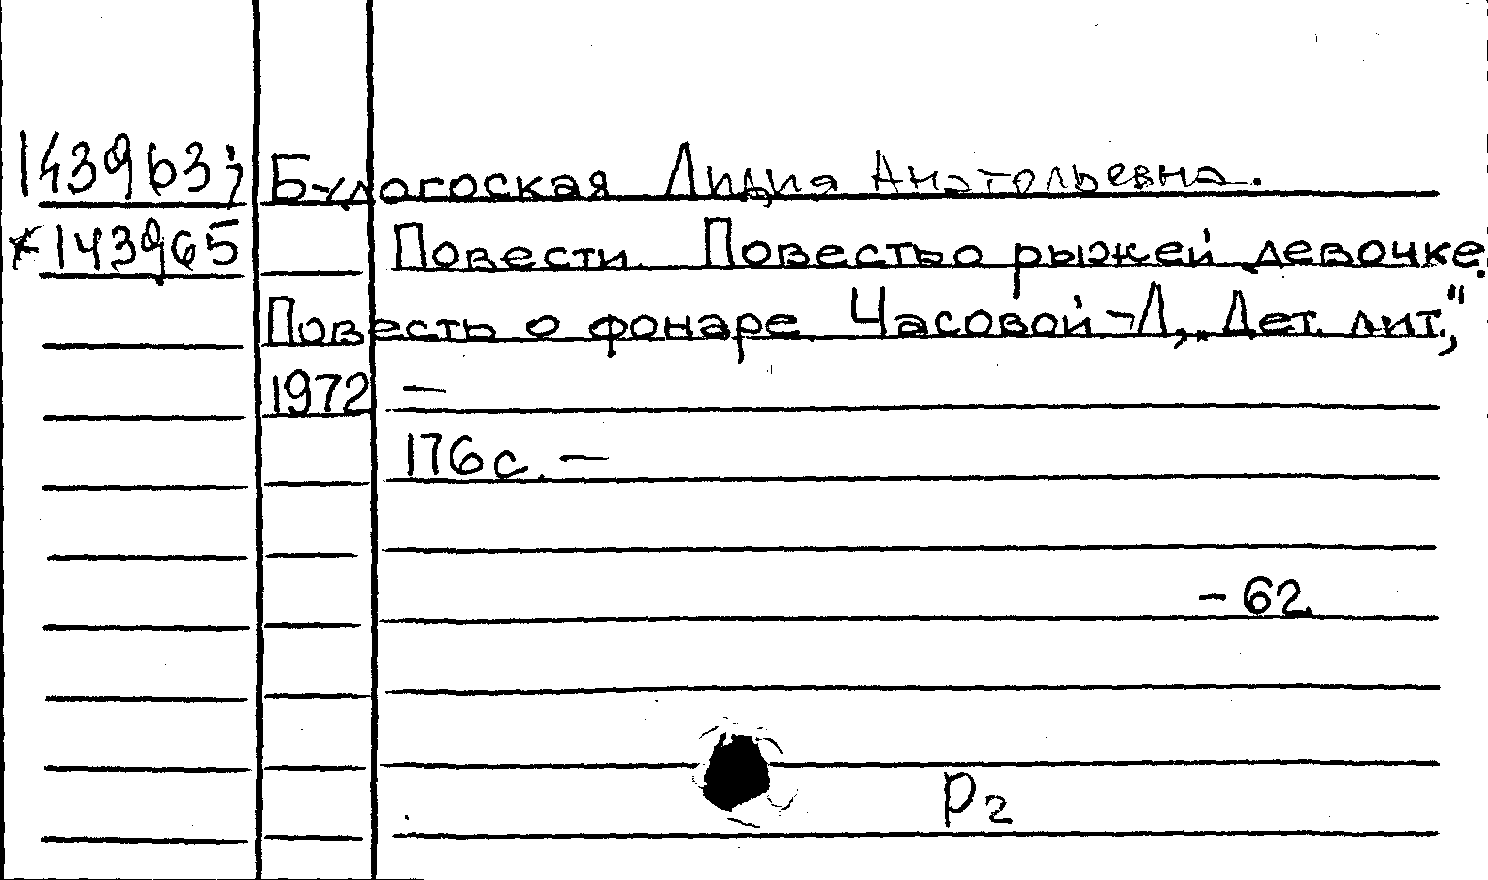 143963; Будогоская Лидия Анатольевна.
*143965 Повести. Повесть о рыжей девочке.
Повесть о фонаре. Часовой - Л, „Дет. лит.",
1972 —
176 с. —
- 62
Р2